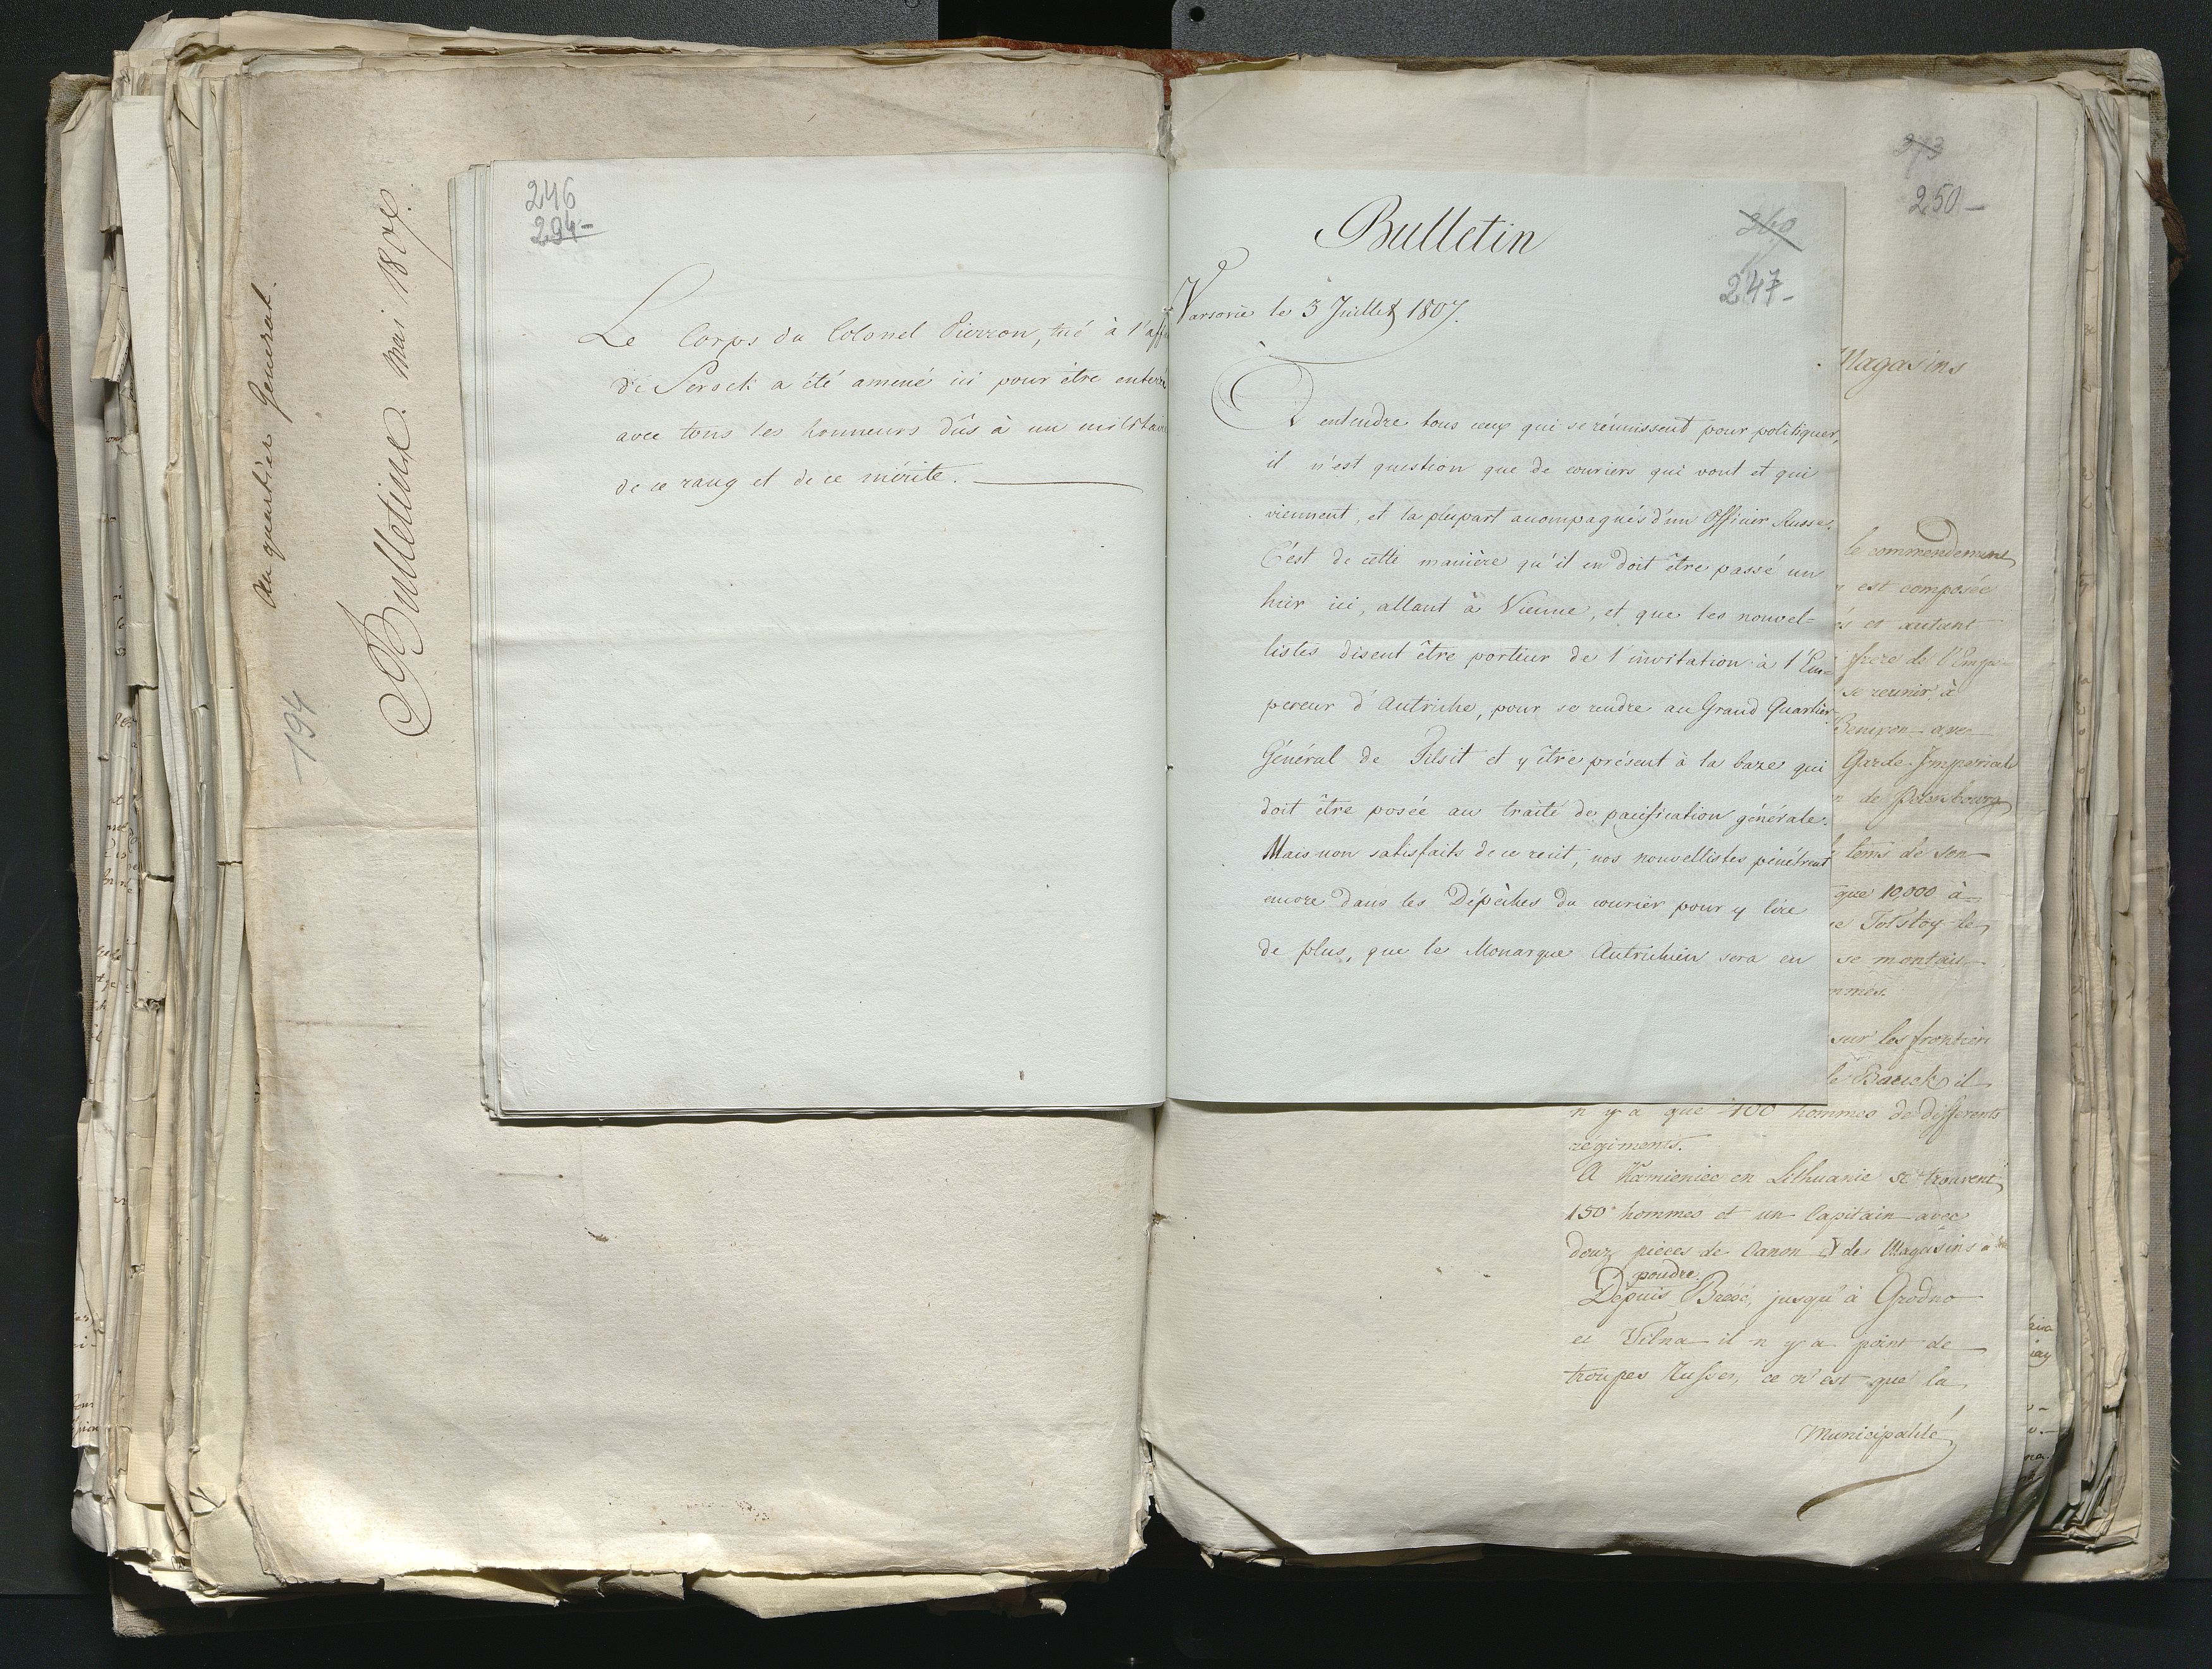 au quartier General.
Bulletins. Mai 1807.
194
246
294-
Le Corps du Colonel Pierron, tué à l'aff
de Serock a été amené ici pour être enterré
avec tous les honneurs dûs à un militaire
de ce rang et de ce mérite.
Bulletin
340
247-
Varsovie le 3 Juillet 1807.
A entendre tous ceux qui se réunissent pour politiquer,
il n'est question que de couriers qui vont et qui
viennent, et la plupart accompagnés d'un Officier Russe.
C'est de cette manière qu'il en doit être passé un
hier ici, allant à Vienne, et que les nouvel=
listes disent être porteur de l'invitation à l'Em=
pereur d'Autriche, pour se rendre au Grand Quartier-
Général de Tilsit et y être présent à la baze qui
doit être posée au traité de pacification générale.
Mais non satisfaits de ce recit, nos nouvellistes pénétrent
encore dans les Dépêches du courier pour y lire
de plus, que le Monarque Autrichien sera en
273
250-
Magasins
le commendement
est composée
és et autant
frere de l'Emp
se reunir à
Garde Imperiale
n de Petersbourg
tems de son
que 10,000 à
Tolstoy le
se montait
mmes.
sur les frontier
il
n y a que 400 hommes de differents
régiments.
A Kamieniec en Lithuanie se trouvent
150 hommes et un Capitain avec
douz pieces de Canon & des Magasins à
poudre.
Dépuis Brzesc, jusqu'à Grodno
et Vilna il n y a point de
troupes Russes, ce n'est que la
Municipalité